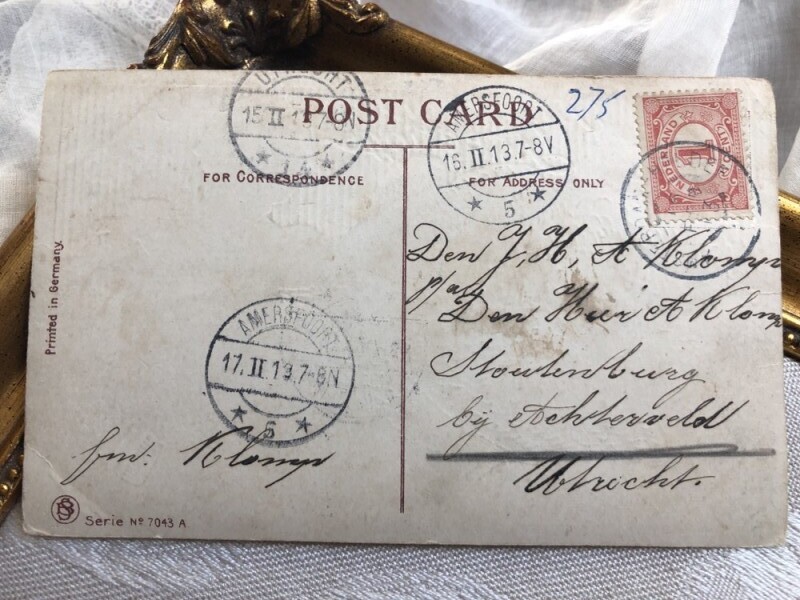 POST CARD
275
UTRECHT
15.II.13.7-8N
AMERSFOORT
16.II.13.7-8V
5
NEDERLAND
1
FOR CORRESPONDENCE
FOR ADDRESS ONLY
Den J, H, A Klomp
p/a
Den Heer A Klomp
Stoutenburg
bij Achterveld
Utrecht.
Printed in Germany.
AMERSFOORT
17.II.13.7-8N
5
fam. Klomp
Serie No 7043 A